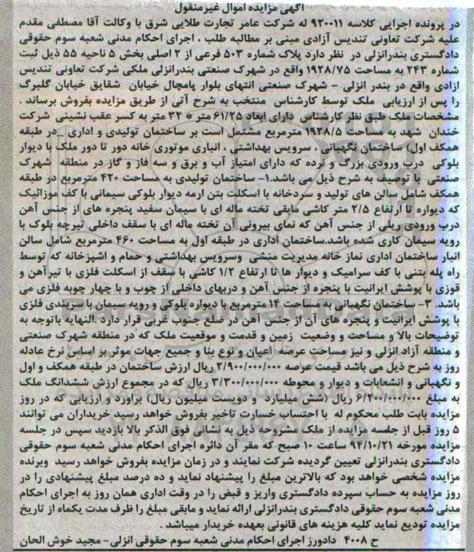 آگهی مزایده اموال غیرمنقول
در پرونده اجرایی کلاسه ۹۲۰۰۱۱ له شرکت عامر تجارت طلایی شرق با وکالت آقا مصطفی مقدم
علیه شرکت تعاونی تندیس آزادی مبنی بر مطالبه طلب ، اجرای احکام مدنی شعبه سوم حقوقی
دادگستری بندرانزلی در نظر دارد پلاک شماره ۵۰۳ فرعی از ۲ اصلی بخش ۵ ناحیه ۵۵ ذیل ثبت
شماره ۲۴۳ به مساحت ۱۹۲۸/۷۵ واقع در شهرک صنعتی بندرانزلی ملکی شرکت تعاونی تندیس
ازادی واقع در بندر انزلی - شهرک صنعتی انتهای بلوار پامچال خیابان شقایق خیابان گلبرگ
را پس از ارزیابی ملک توسط کارشناس منتخب به شرح آتی از طریق مزایده بفروش برساند .
مشخصات ملک طبق نظر کارشناس دارای ابعاد ۶۱/۲۵ متر * ۳۲ متر به کسر عقب نشینی شرکت
خندان شهد به مساحت ۱۹۲۸/۵ مترمربع مشتمل است بر ساختمان تولیدی و اداری در طبقه
همکف اول) ساختمان نگهبانی ، سرویس بهداشتی ، انباری موتوری خانه دور تا دور ملک با دیوار
بلوکی درب ورودی بزرگ و نرده که دارای امتیاز آب و برق و سه فاز و گاز در منطقه شهرک
صنعتی با توصیف به شرح ذیل می باشد.۱- ساختمان تولیدی به مساحت ۴۲۰ مترمربع در طبقه
همکف شامل سالن های تولید و سردخانه با اسکلت بتن ارمه دیوار بلوکی سیمانی با کف موزائیک
که دیواره تا ارتفاع ۲/۵ متر کاشی مابقی تخته ماله ای با سیمان سفید پنجره های از جنس آهن
درب ورودی ریلی از جنس آهن که نمای بیرونی آن تخته ماله ای با سقف داخلی تیرچه بلوک با
رویه سیمان کاری شده باشد.ساختمان اداری در طبقه اول به مساحت ۴۶۰ مترمربع شامل سالن
انبار ساختمان اداری نماز خانه مدیریت منشی وسرویس بهداشتی و حمام و اشپزخانه که توسط
راه پله بتنی با کف سرامیک و دیوار ها تا ارتفاع ۱/۲ کاشی با سقف از اسکلت فلزی با تیرآهن و
قوزی با پوشش ایرانیت با پنجره از جنس آهن و دربهای داخلی از چوب و با چهار چوبه فلزی می
باشد. ۳- ساختمان نگهبانی به مساحت ۱۴ مترمربع با دیواره بلوکی و رویه سیمان با سربندی فلزی
با پوشش ایرانیت و پنجره های آن از جنس آهن در ضلع جنوب غربی قرار دارد .النهایه باتوجه به
توضیحات بالا و مساحت و وضعیت زمین و قدمت و موقعیت ملک که در منطقه شهرک صنعتی
و منطقه آزاد انزلی و نیز مساحت عرصه اعیان و نوع بنا و جمیع جهات موثر بر اساس نرخ عادله
روز به شرح ذیل می باشد قیمت عرصه ۲/۹۰۰/۰۰۰/۰۰۰ ریال ارزش ساختمان در طبقه همکف و اول
و نگهبانی و انشعابات و دیوار و محوطه ۳/۳۰۰/۰۰۰/۰۰۰ ریال که در مجموع ارزش ششدانگ ملک
به مبلغ ۶/۲۰۰/۰۰۰/۰۰۰ ریال (شش میلیارد و دویست میلیون ریال) براورد و ارزیابی که در روز
مزایده بابت طلب محکوم له با احتساب خسارت تاخیر بفروش خواهد رسید خریداران می توانند
۵ روز قبل از جلسه مزایده از ملک مشروحه ذیل به نشانی فوق الذکر بالا بازدید سپس در جلسه
مزایده مورخه ۹۴/۱۰/۲۱ ساعت ۱۰ صبح که مقر آن دائره اجرای احکام مدنی شعبه سوم حقوقی
دادگستری بندرانزلی تعیین گردیده شرکت نمایند و در زمان مزایده بفروش خواهد رسید وبرنده
مزایده شخصی خواهد بود که بالاترین مبلغ را پیشنهاد نماید و ده درصد مبلغ پیشنهادی را در
روز مزایده به حساب سپرده دادگستری واریز و قبض را در وقت اداری همان روز به اجرای احکام
مدنی شعبه سوم حقوقی دادگستری بندرانزلی ارائه نماید و مابقی مبلغ را ظرف مدت یکماه از تاریخ
مزایده تودیع نماید کلیه هزینه های قانونی بعهده خریدار میباشد.
ح ۴۰۰۸ دادورز اجرای احکام مدنی شعبه سوم حقوقی انزلی - مجید خوش الحان